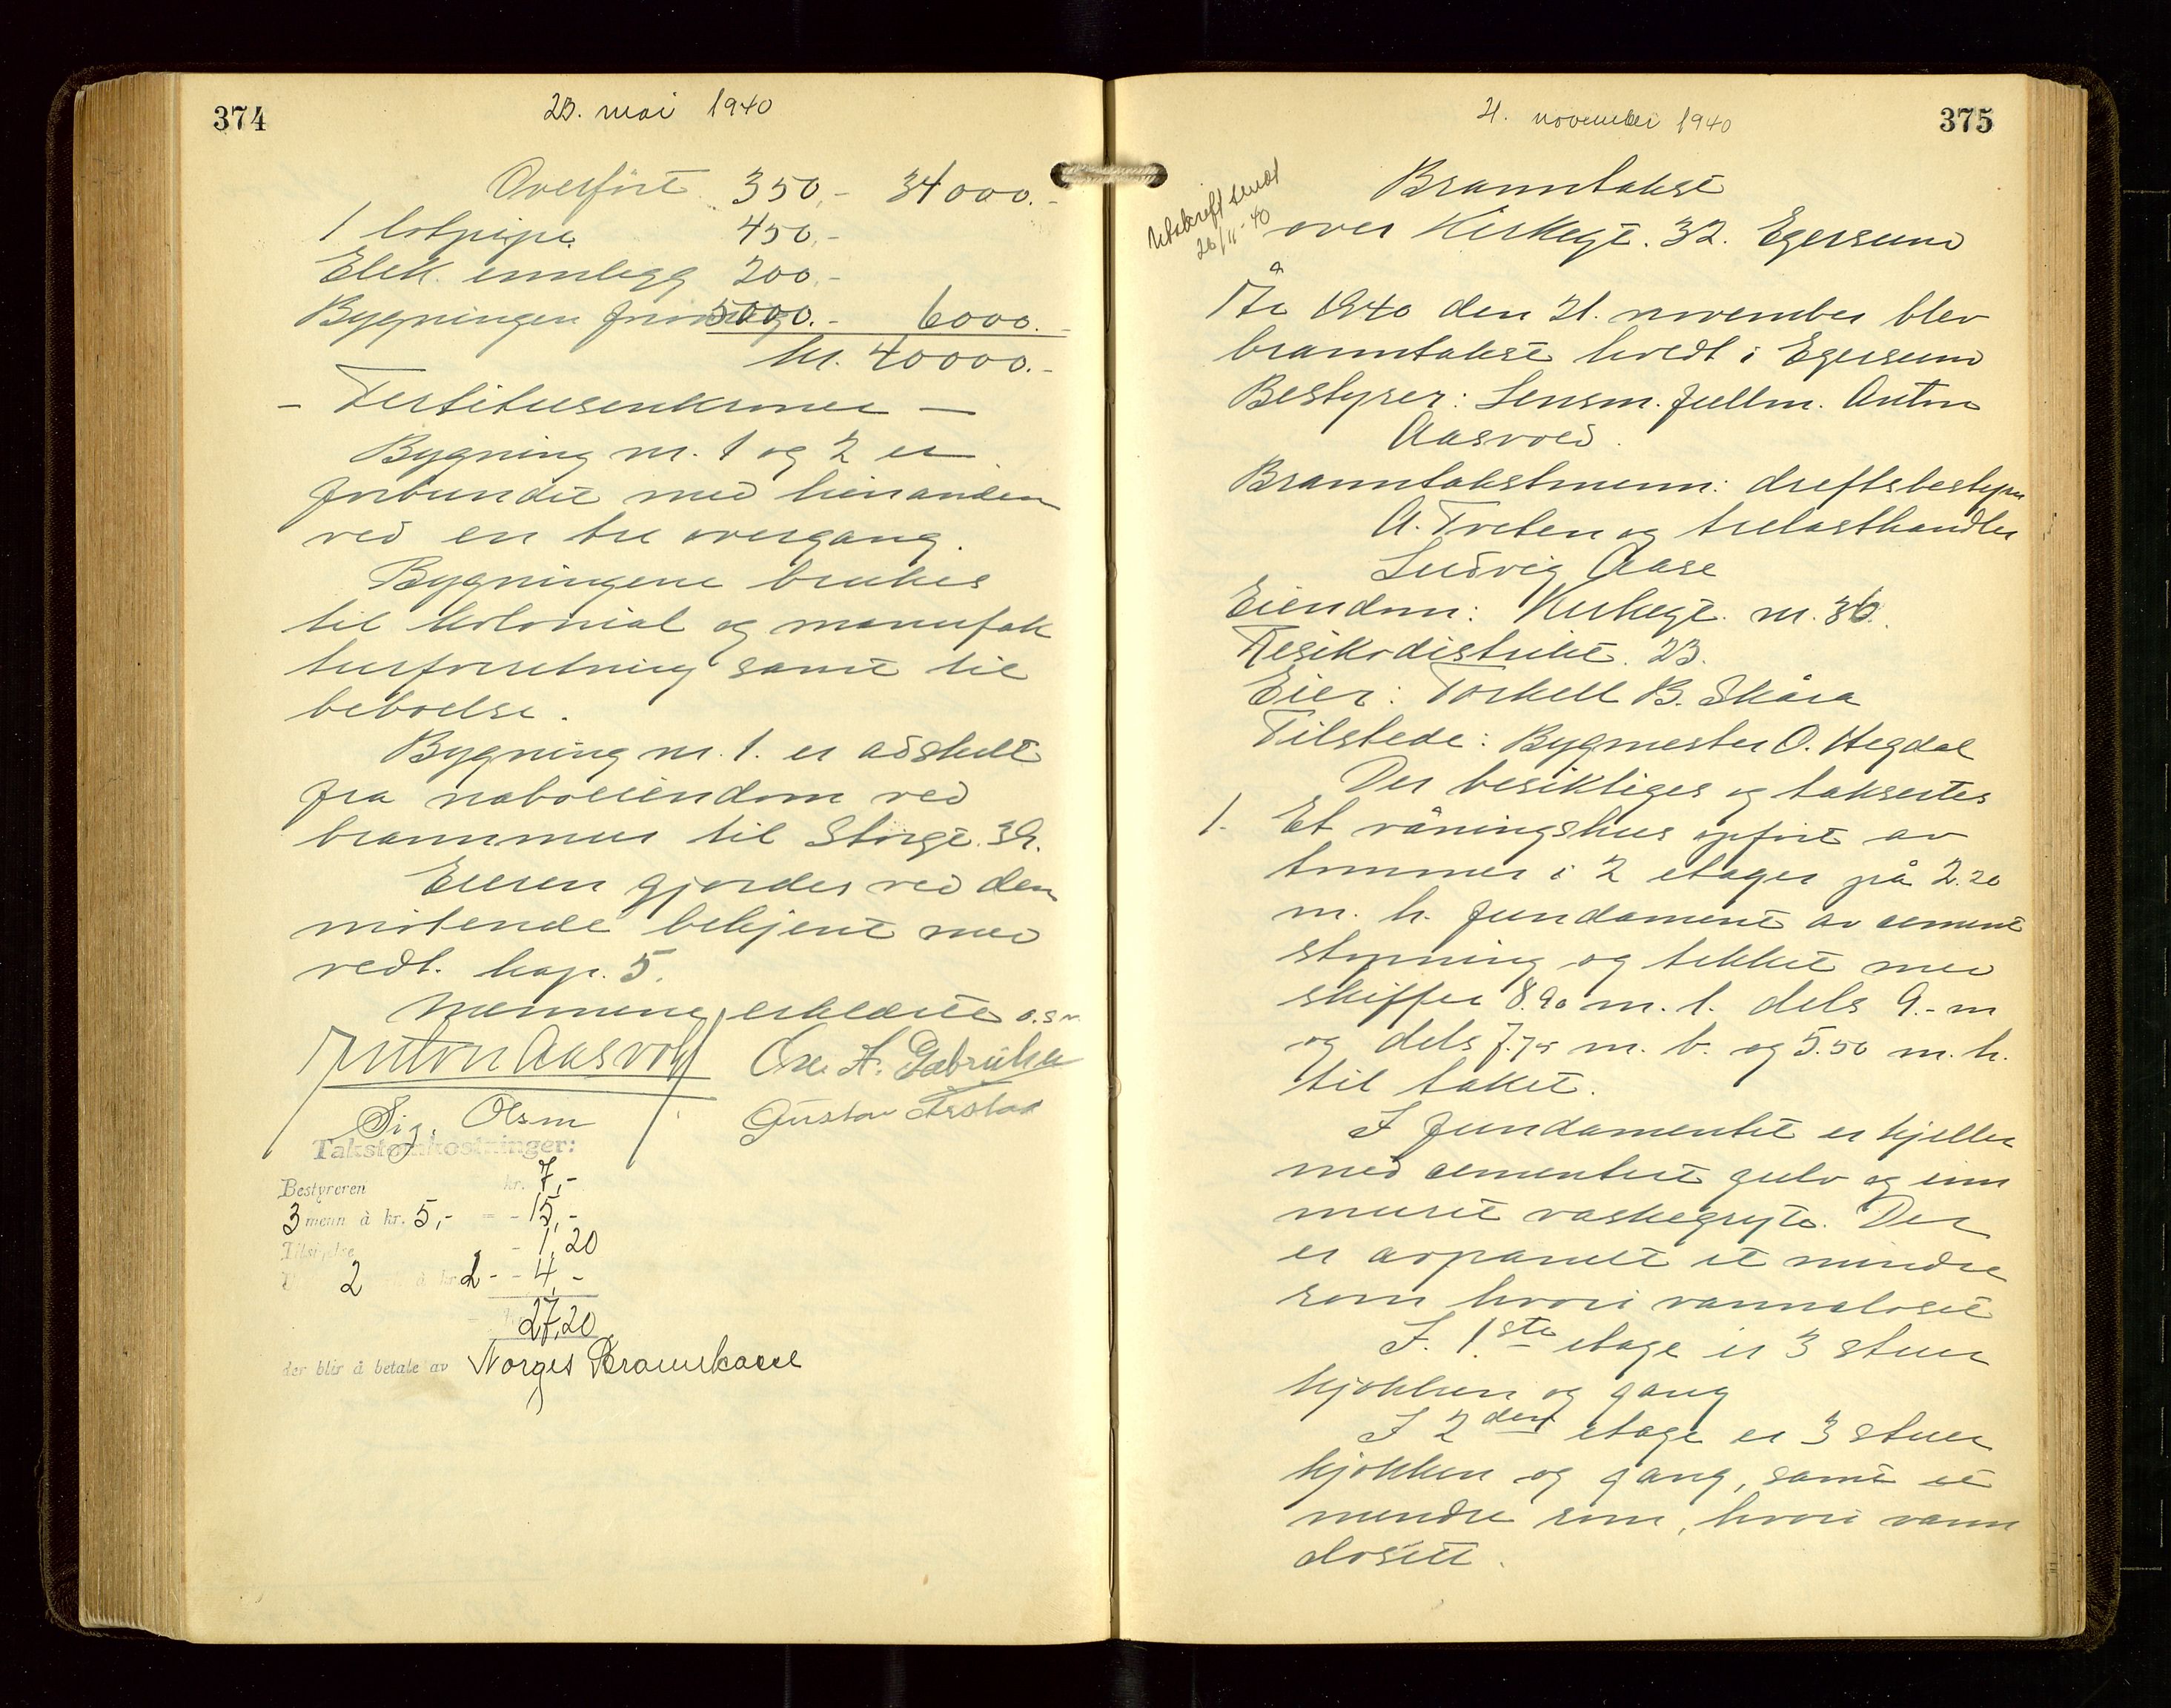 374
23. mai 1940
Overført 350,- 34000.-
1 lotpipe 450,-
Elek. innlegg 200,-
Bygningen forøvrig 5000.- 6000.-
kr. 40000.-
- Førtitusenkroner -
Bygning nr. 1 og 2 er
forbundet med hinanden
ved en tre overgang.
Bygningene brukes
til kolonial og manufak
turforretning samt til
beboelse.
Bygning nr. 1. er adskilt
fra naboeiendom ved
brannmur til Storgt. 39.
Eieren gjordes ved den
møtende bekjent med
vedt. kap. 5.
Mennene erklærte o.s.v.
Anton Aasvold
Sig. Olsen
Gustav Årstad
Takstomkostninger:
Bestyreren kr. 7,-
3 menn à kr. 5,- = - 15,-
Tilsigelse - 1,20
2 à kr. 2 - - 4,-
27,20
der blir å betale av Norges Brannkasse
375
21. november 1940
Utskrift sendt
26/11-40
Branntakst
over Kirkegt. 32. Egersund
År 1940 den 21. november blev
branntakst holdt i Egersund
Bestyrer: Lensm. fullm. Anton
Aasvold.
Branntakstmenn: driftsbestyrer
A. Treten og trelasthandler
Ludvig Aase
Eiendom: Kirkegt. nr. 36.
Risikodistrikt. 23.
Eier: Torkell B. Skåra
Tilstede: Bygmester O. Hegdal
Der besiktiges og taksertes
1. Et våningshus opført av
tømmer i 2 etager på 2.20
m. h. fundament av cement
støpning og tekket med
skiffer 8.90 m. l. dels 9.- m
og dels 7.75 m. b. og 5.50 m. h.
til taket.
I fundamentet er kjeller
med cementert gulv og inn
muret vaskegryte. Der
er avpanelt et mindre
rom hvori vannkloset
I. 1.ste etage er 3 stuer
kjøkken og gang
I 2 den etage er 3 stuer
kjøkken og gang, samt et
mindre rom, hvori vann
closett.